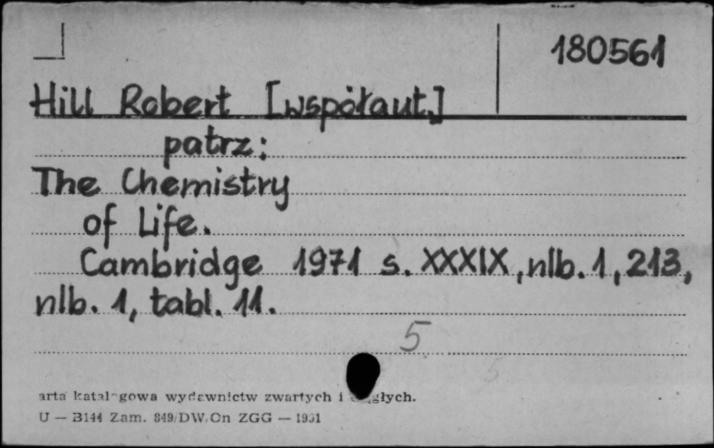 180561
Hill Robert [współaut.]
patrz:
The Chemistry
of Life.
Cambridge 1971 s. XXXIX, nlb. 1, 213,
nlb. 1, tabl. 11.
5
arta katal gowa wydawnictw zwartych i głych.
U — B144 Zam. 849/DW.Cn ZGG — 1951